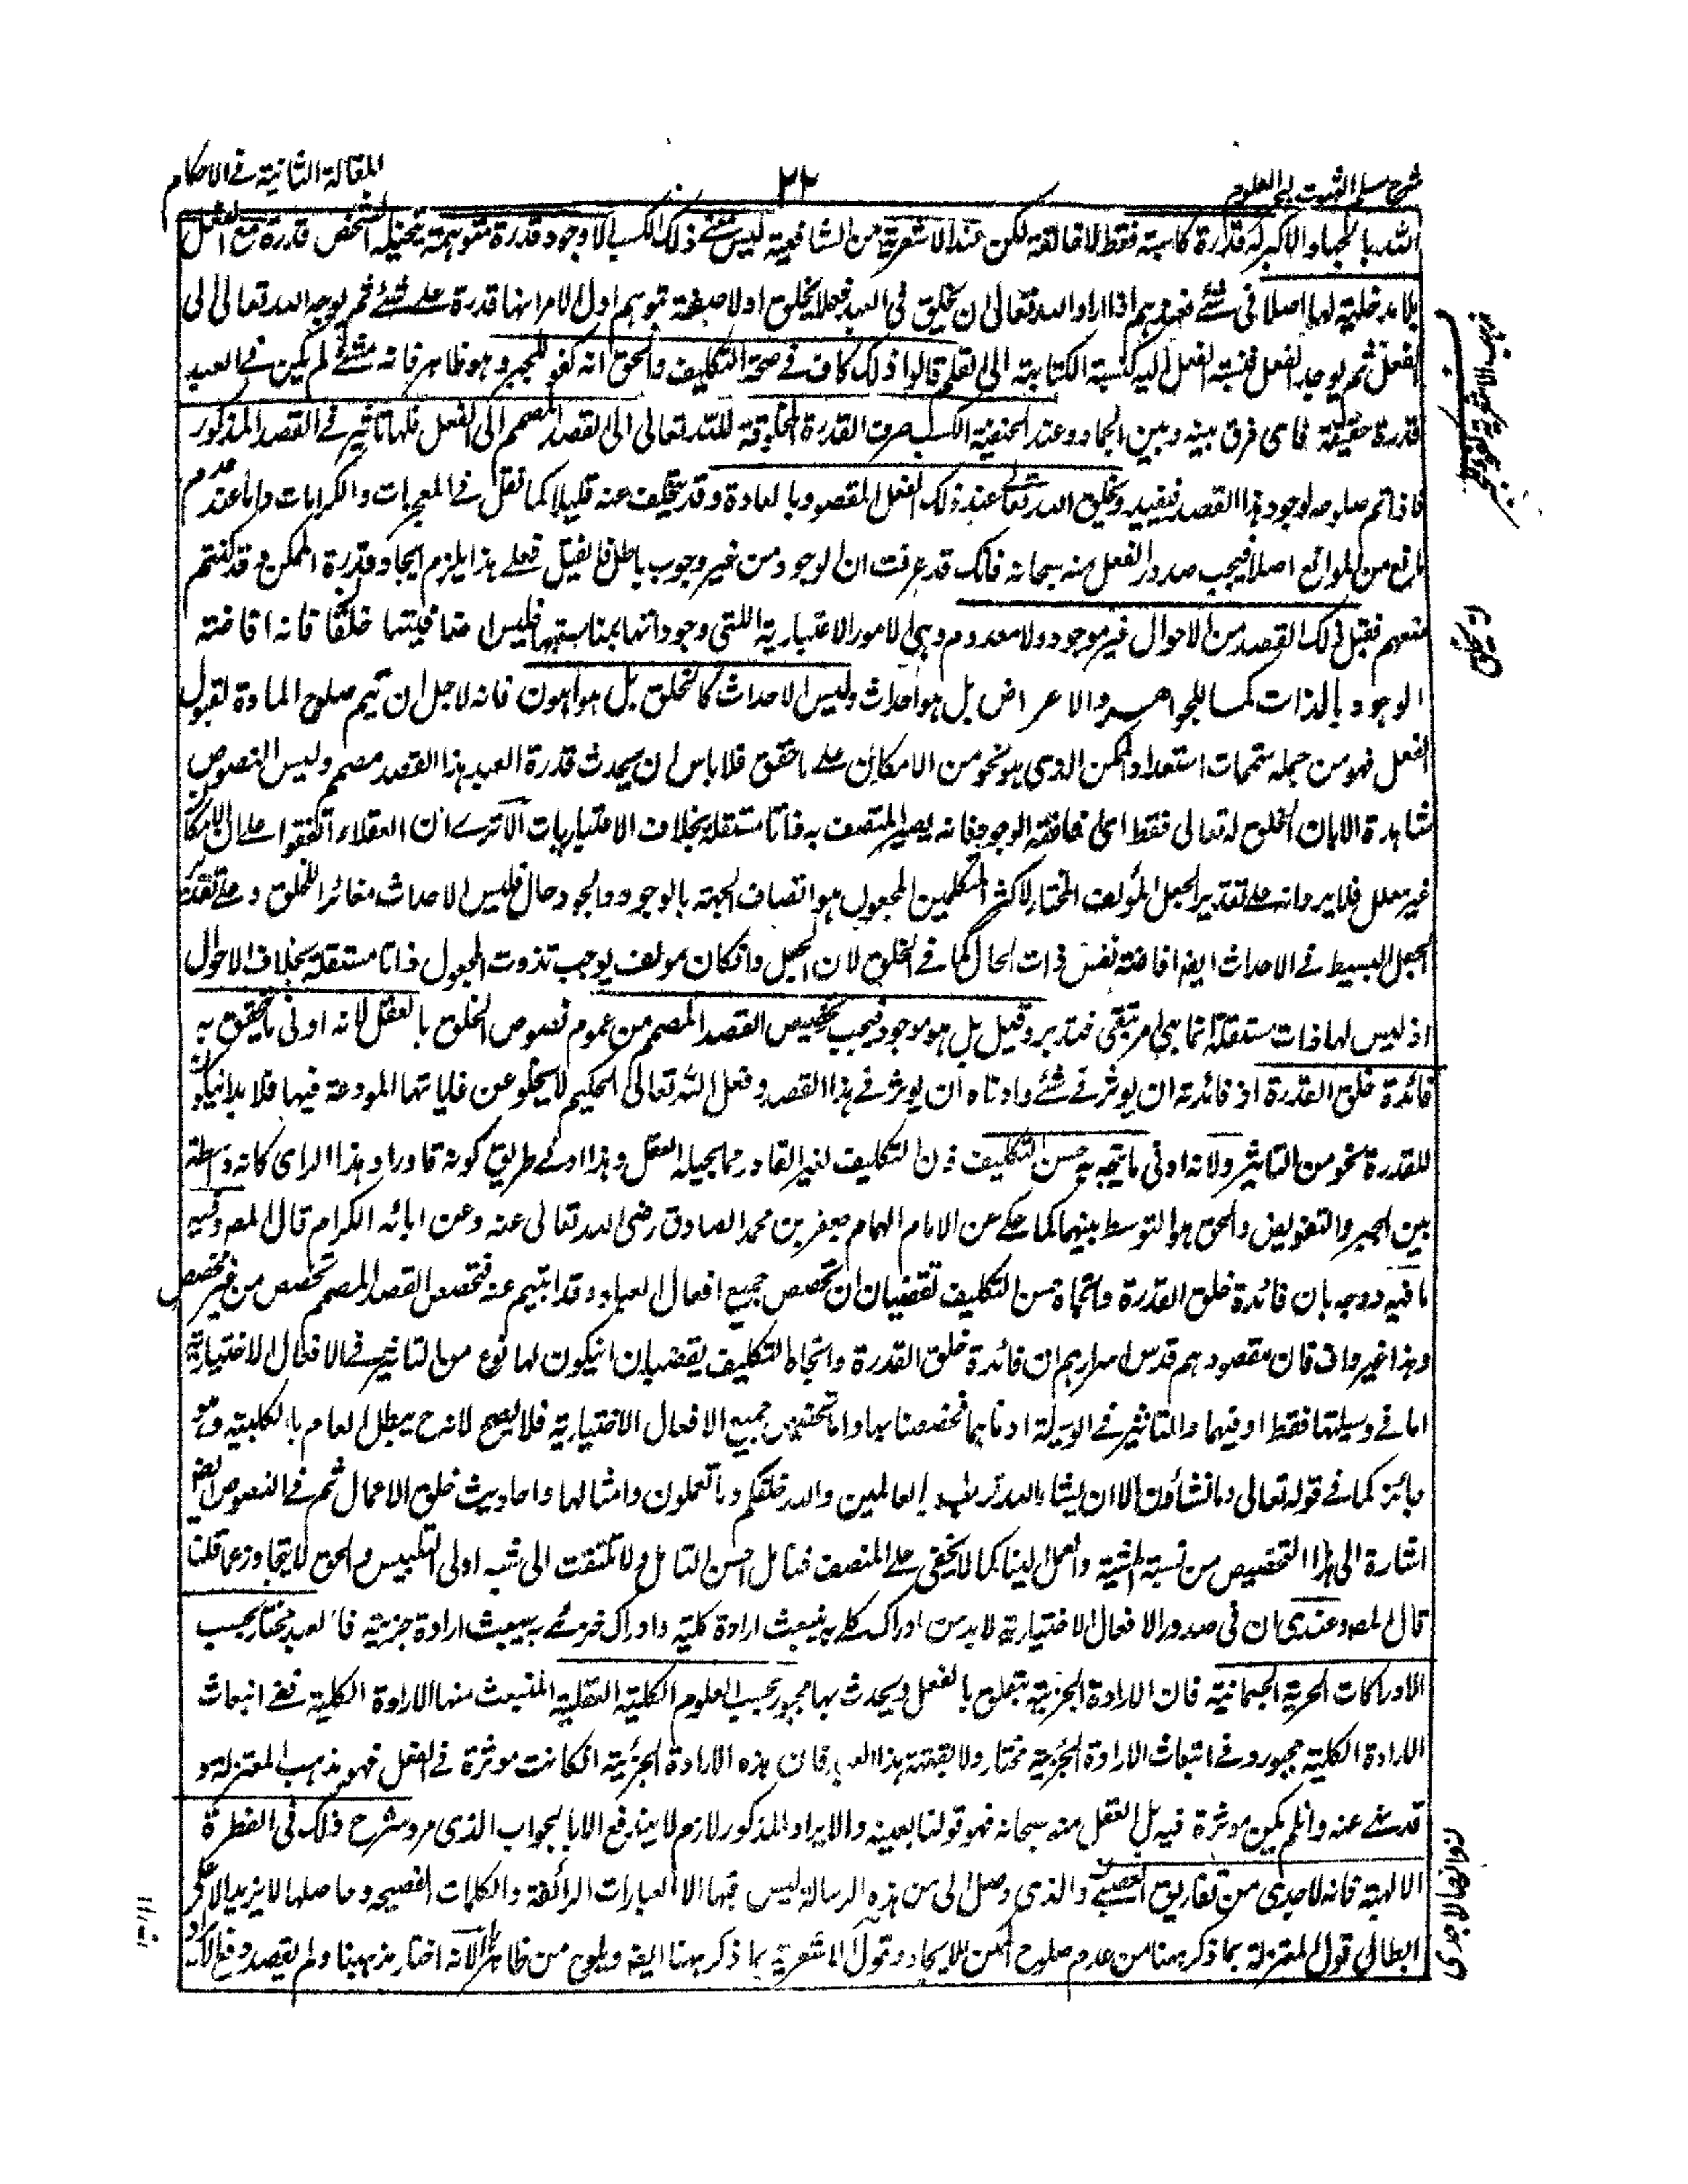 شرح مسلم الثبوت لبحر العلوم
٢٢
المقالة الثانية في الاحكام
الله بالجهاد الاكبر له قدرة كاسبة فقط لا خالقة لكن عند الاشعرية من الشافعية ليس معنى ذلك الكسب الا وجود قدرة متوهمة يتخيله الشخص قدرة مع الفعل
بلا مدخلية لها اصلا في شئ فعندهم اذا اراد الله تعالى ان يخلق في العبد فعلا يخلق اولا صفة تتوهم اول الامر انها قدرة على شئ ثم يوجه الله تعالى الى
الفعل ثم يوجد الفعل فنسبة الفعل اليه كنسبة الكتابة الى القلم قالوا ذلك كاف في صحة التكليف والحق انه كفو للجبر وهو ظاهر فانه متى لم يكن في العبد
قدرة حقيقة فاى فرق بينه وبين الجماد وعند الحنفية الكسب صرف القدرة المخلوقة لله تعالى الى القصد المصمم الى الفعل فلها تاثير في القصد المذكور
فاذا تم صلوحه لوجود هذا القصد فيفيد ويخلق الله تعالى عند ذلك الفعل المقصود بالعادة وقد يتخلف عنه قليلا كما نقل في المعجزات والكرامات واما عند عدم
مانع من الموانع اصلا فيجب صدور الفعل منه سبحانه فانك قد عرفت ان الوجود من غير وجوب باطل فان قيل فعلى هذا يلزم ايجاد قدرة الممكن وقد كنتم
منعهم فقيل ذلك القصد من الاحوال غير موجود ولا معدوم وهي الامور الاعتبارية اللتى وجوداتها بمناسبتها فليس اضافيتها خلقا فانه افاضة
الوجود بالذات كما للجواهر والاعراض بل هو احداث وليس الاحداث كالخلق بل هو اهون فانه لاجل ان يتم صلوح المادة لقبول
الفعل فهو من جملة متممات استعداد الممكن الذى هو نحو من الامكان على ما حقق فلا باس ان يحدث قدرة العبد هذا القصد مصمم وليس النصوص
شاهدة الا بان الخلق له تعالى فقط اى افاضة الوجود فانه يصير المتصف به ذاتا مستقلة بخلاف الاعتباريات الا ترى ان العقلاء اتفقوا على ان الامكان
غير معلل فلا يرد انه على تقدير الجعل المؤلف المختار لاكثر المتكلمين المجعول هو اتصاف المهية بالوجود والوجود حال فليس الاحداث مغائرا للخلق وعلى تقدير
الجعل البسيط في الاحداث ايضا افاضة نفس ذات الحال كما في الخلق لان الجعل وان كان مولف يوجب تذوت المجعول ذاتا مستقلة بخلاف الاحوال
اذ ليس لها ذات مستقلة انما هي امر تبقى فتدبر وقيل بل هو موجود فيجب تخصيص القصد المصمم من عموم نصوص الخلق بالعقل لانه ادنى ما يتحقق به
فائدة خلق القدرة اذ فائدته ان يوثر في شئ وادناه ان يوثر في هذا القصد وفعل الله تعالى الحكيم لا يخلو عن غاياتها المودعة فيها فلا بد ان يكون
للقدرة نحو من التاثير ولانه ادنى ما يتجه به حسن التكليف فان التكليف لغير القادر مما يحيله العقل وهذا ادنى طريق كونه قادرا وهذا الراى كانه واسطة
بين الجبر والتفويض والحق هو التوسط بينهما كما حكى عن الامام الهمام جعفر بن محمد الصادق رضى الله تعالى عنه وعن ابائه الكرام قال المصـ وفيه
ما فيه ووجه بان فائدة خلق القدرة واتجاه حسن التكليف تقتضيان ان تخصص جميع افعال العباد وقد ابيتم عنه فتخصص القصد المصمم تخصص من غير مخصص
وهذا غير واف فان مقصودهم قدس اسرارهم ان فائدة خلق القدرة واتجاه التكليف يقتضيان ان يكون لها نوع من التاثير في الافعال الاختيارية
اما في وسيلتها فقط او فيهما والتاثير في الوسيلة ادناهما فخصصنا بها واما تخصيص جميع الافعال الاختيارية فلا يصح لانه ح يبطل العام بالكلية وهو غير
جائز كما في قوله تعالى وما تشاؤن الا ان يشاء الله رب العالمين والله خلقكم وما تعملون وامثالها واحاديث خلق الاعمال ثم في النصوص ايضا
اشارة الى هذا التخصيص من نسبة المشية والعمل الينا كما لا يخفى على المنصف فتامل احسن التامل ولا تلتفت الى شبه اولى التلبيس والحق لا يتجاوز عما قلنا
قال المصـ وعندى ان في صدور الافعال الاختيارية لا بد من ادراك كلى به ينبعث ارادة كلية وادراك جزئى به ينبعث ارادة جزئية فالعبد مختار بحسب
الادراكات الجزئية الجسمانية فان الارادة الجزئية تتعلق بالفعل ويحدث بها مجبور بحسب العلوم الكلية العقلية المنبعث منها الارادة الكلية ففى انبعاث
الارادة الكلية مجبور وفي انبعاث الارادة الجزئية مختار ولا يقنعه هذا العبد فان هذه الارادة الجزئية ان كانت موثرة في الفعل فهو مذهب المعتزلة و
قد نهى عنه وان لم يكن موثرة فيه بل الفعل منه سبحانه فهو قولنا بعينه والايراد المذكور لازم لا يندفع الا بالجواب الذى مر وشرح ذلك في الفطرة
الالهية فانه لاجدى من تفاريق العصى والذى وصل الى من هذه الرسالة ليس فيها الا العبارات الرائقة والكلمات الفصيحة وحاصلها لا يزيد الا على
ابطال قول المعتزلة بما ذكر ههنا من عدم صلوح الممكن للايجاد وقول الاشعرية بما ذكر ههنا ايضا ويلوح من ظاهره انه اختار مذهبنا ولم يقصد دفع الايراد